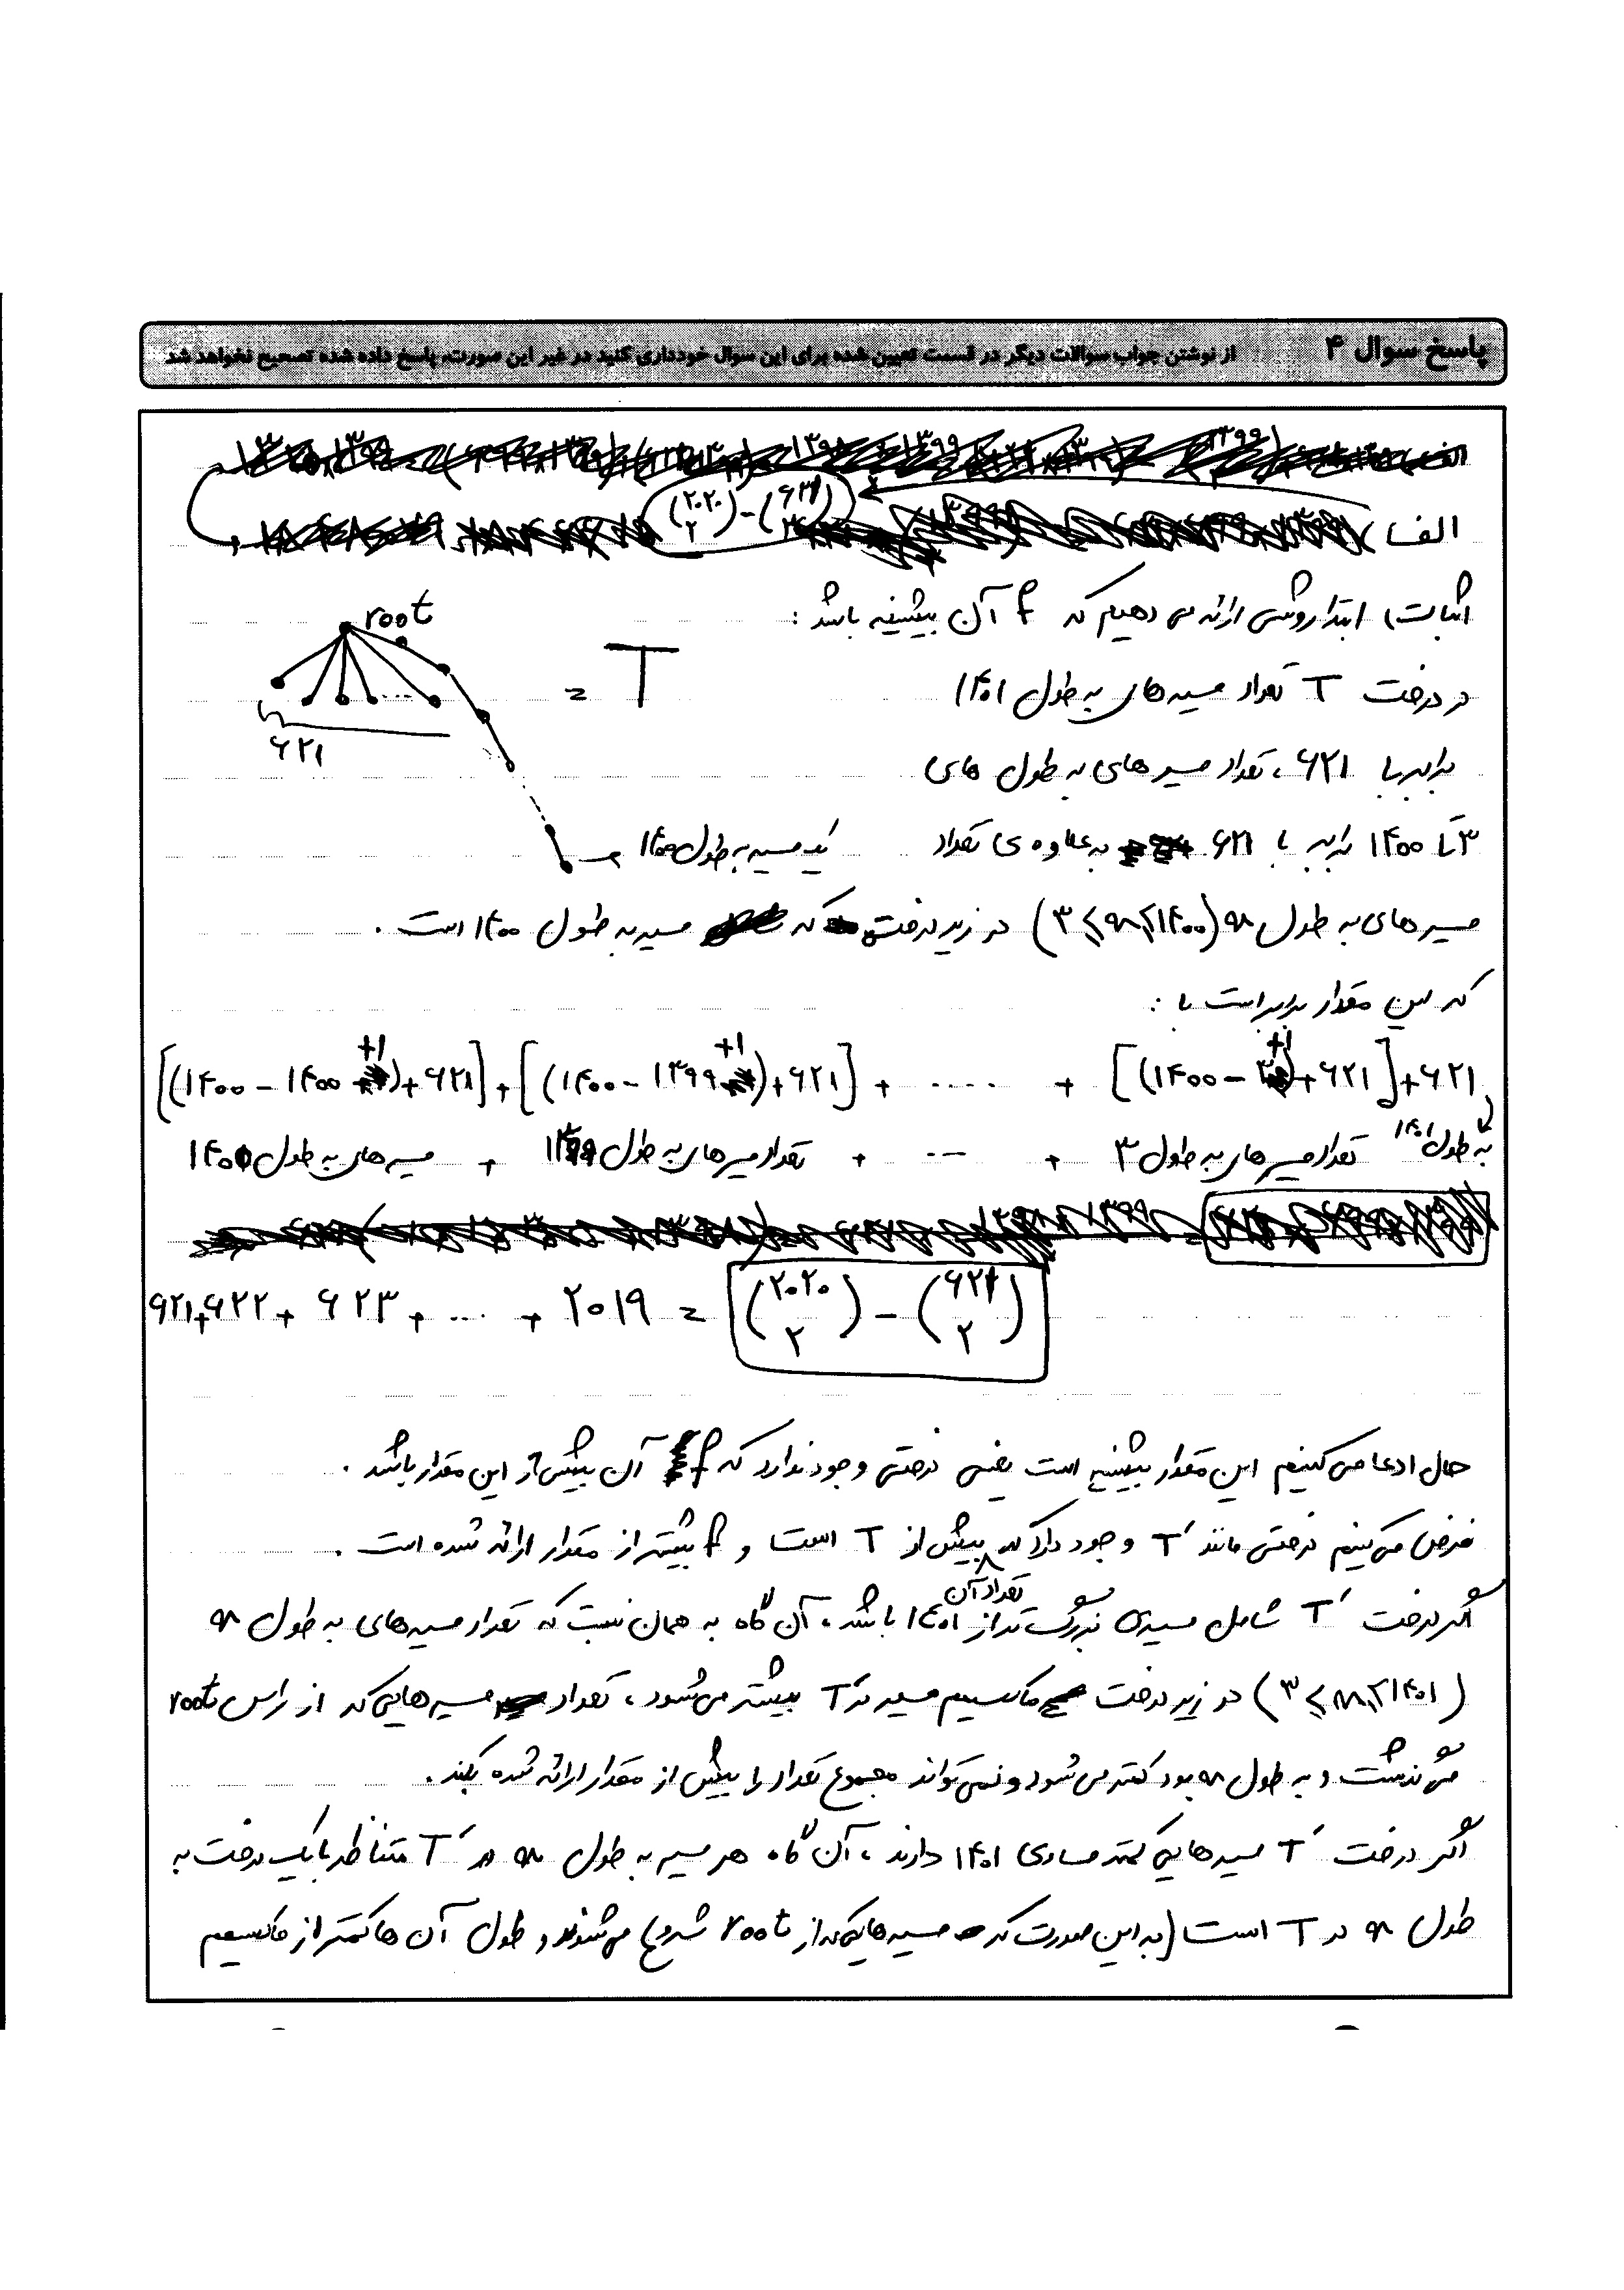 پاسخ سوال ۴ از نوشتن جواب سوالات دیگر در قسمت تعیین شده برای این سوال خودداری کنید در غیر این صورت، پاسخ داده شده تصحیح نخواهد شد
الف) (۲۰۲۰ ۲) - (۶۲۱ ۲)
اثبات) ابتدا روشی ارائه می دهیم که f آن بیشینه باشد :
root
T =
۶۲۱
در درخت T تعداد مسیر های به طول ۱۴۰۱
برابر با ۶۲۱ ، تعداد مسیر های به طول های
۳ تا ۱۴۰۰ برابر با ۶۲۱ به علاوه ی تعداد
یک مسیر به طول ۱۴۰۰
مسیر های به طول n (۳ ≤ n ≤ ۱۴۰۰) در زیر درخت که مسیر به طول ۱۴۰۰ است .
که این مقدار برابر است با :
[(۱۴۰۰ - ۱۴۰۰ +۱) + ۶۲۱] + [(۱۴۰۰ - ۱۳۹۹ +۱) + ۶۲۱] + .... + [(۱۴۰۰ - ۳ +۱) + ۶۲۱] + ۶۲۱
مسیر های به طول ۱۴۰۰ + تعداد مسیر های به طول ۱۳۹۹ + --- + تعداد مسیر های به طول ۳ به طول ۱۴۰۱
۶۲۱ + ۶۲۲ + ۶۲۳ + .... + ۲۰۱۹ = (۲۰۲۰ ۲) - (۶۲۱ ۲)
حال ادعا می کنیم این مقدار بیشینه است یعنی درختی وجود ندارد که f آن بیش از این مقدار باشد .
فرض می کنیم درختی مانند T' وجود دارد که بیش از T است و f بیشتر از مقدار ارائه شده است .
تعداد آن
اگر درخت T' شامل مسیری بزرگ تر از ۱۴۰۱ باشد ، آن گاه به همان نسبت که تعداد مسیر های به طول n
(۳ ≤ n ≤ ۱۴۰۱) در زیر درخت ماکسیمم مسیر در T' بیشتر می شود ، تعداد مسیر هایی که از راس root
می گذشت و به طول n بود کمتر می شود و نمی تواند مجموع تعداد را بیش از مقدار ارائه شده بکند .
اگر درخت T' مسیر هایی کمتر مساوی ۱۴۰۱ دارند ، آن گاه هر مسیر به طول n در T' متناظر با یک درخت به
طول n در T است (به این صورت که مسیر هایی که از root شروع می شوند و طول آن ها کمتر از ماکسیمم